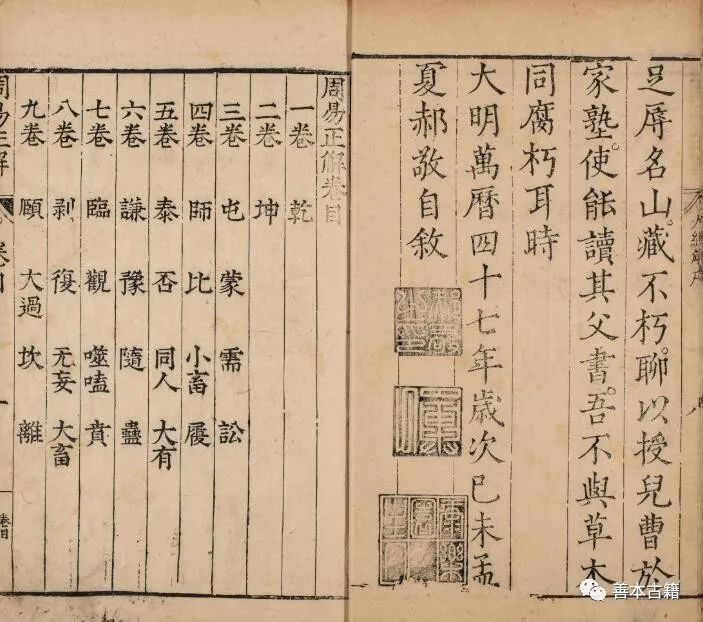 足辱名山。藏不朽。聊以授兒曹於
家塾。使能讀其父書。吾不與草木
同腐朽耳時
大明萬曆四十七年歲次己未孟
夏郝敬自敘
周易正解卷目
一卷 乾
二卷 坤
三卷 屯 蒙 需 訟
四卷 師 比 小畜 履
五卷 泰 否 同人 大有
六卷 謙 豫 隨 蠱
七卷 臨 觀 噬嗑 賁
八卷 剥 復 无妄 大畜
九卷 頤 大過 坎 離
周易正解
卷目
善本古籍